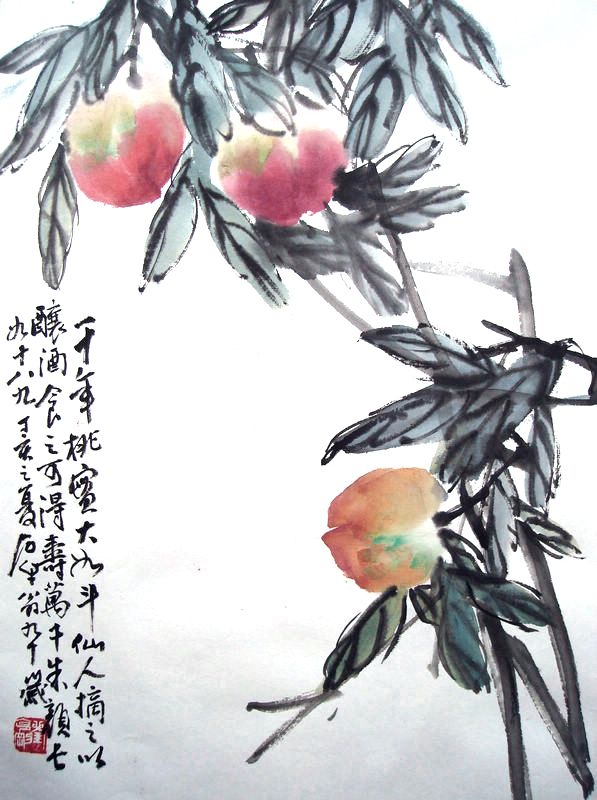 一千年桃實大如斗仙人摘之以
釀酒食之可得壽萬千朱顏七
九十八九丁亥之夏石生翁九十歲